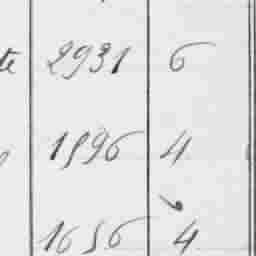 te 2931 6
1896 4
1656 4